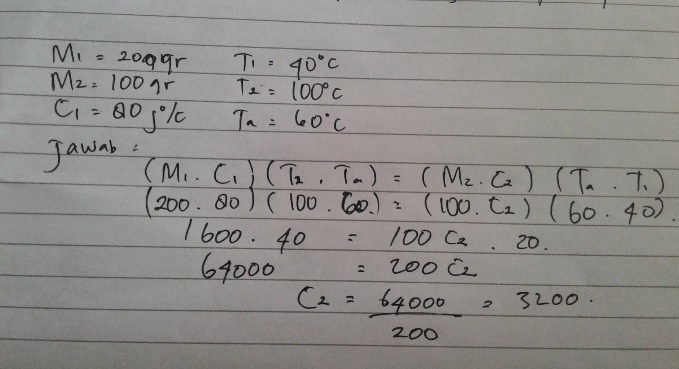 M1 = 200gr T1 = 40°C
M2 = 100gr T2 = 100°C
C1 = 80 j°/c Ta = 60°C
Jawab :
(M1 . C1) (T2 . Ta) = (M2 . C2) (Ta . T1)
(200 . 80) (100 . 60) = (100 . C2) (60 . 40).
1600 . 40 = 100 C2 . 20.
64000 = 200 C2
C2 = 64000 = 3200 .
200